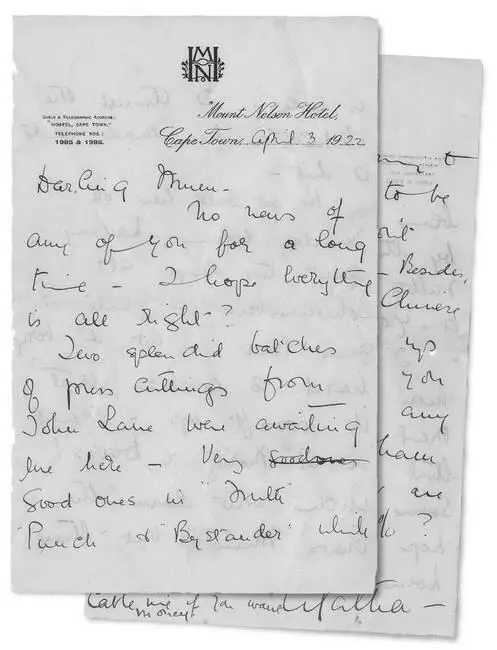 MNH
CABLE & TELEGRAPHIC ADDRESS:
TELEPHONE NOS.:
1985 & 1986.
Mount Nelson Hotel,
Cape Town, April 3 1922
Darling
No news of
any of you for a long
time - I hope everything
is all right?
Two splendid batches
of press cuttings from
John Lane were awaiting
me here - Very good ones
Good ones in
"Punch" & "Bystander" while
to be
Besides,
Chinese
you
any
are
?
Cable me if you want
money